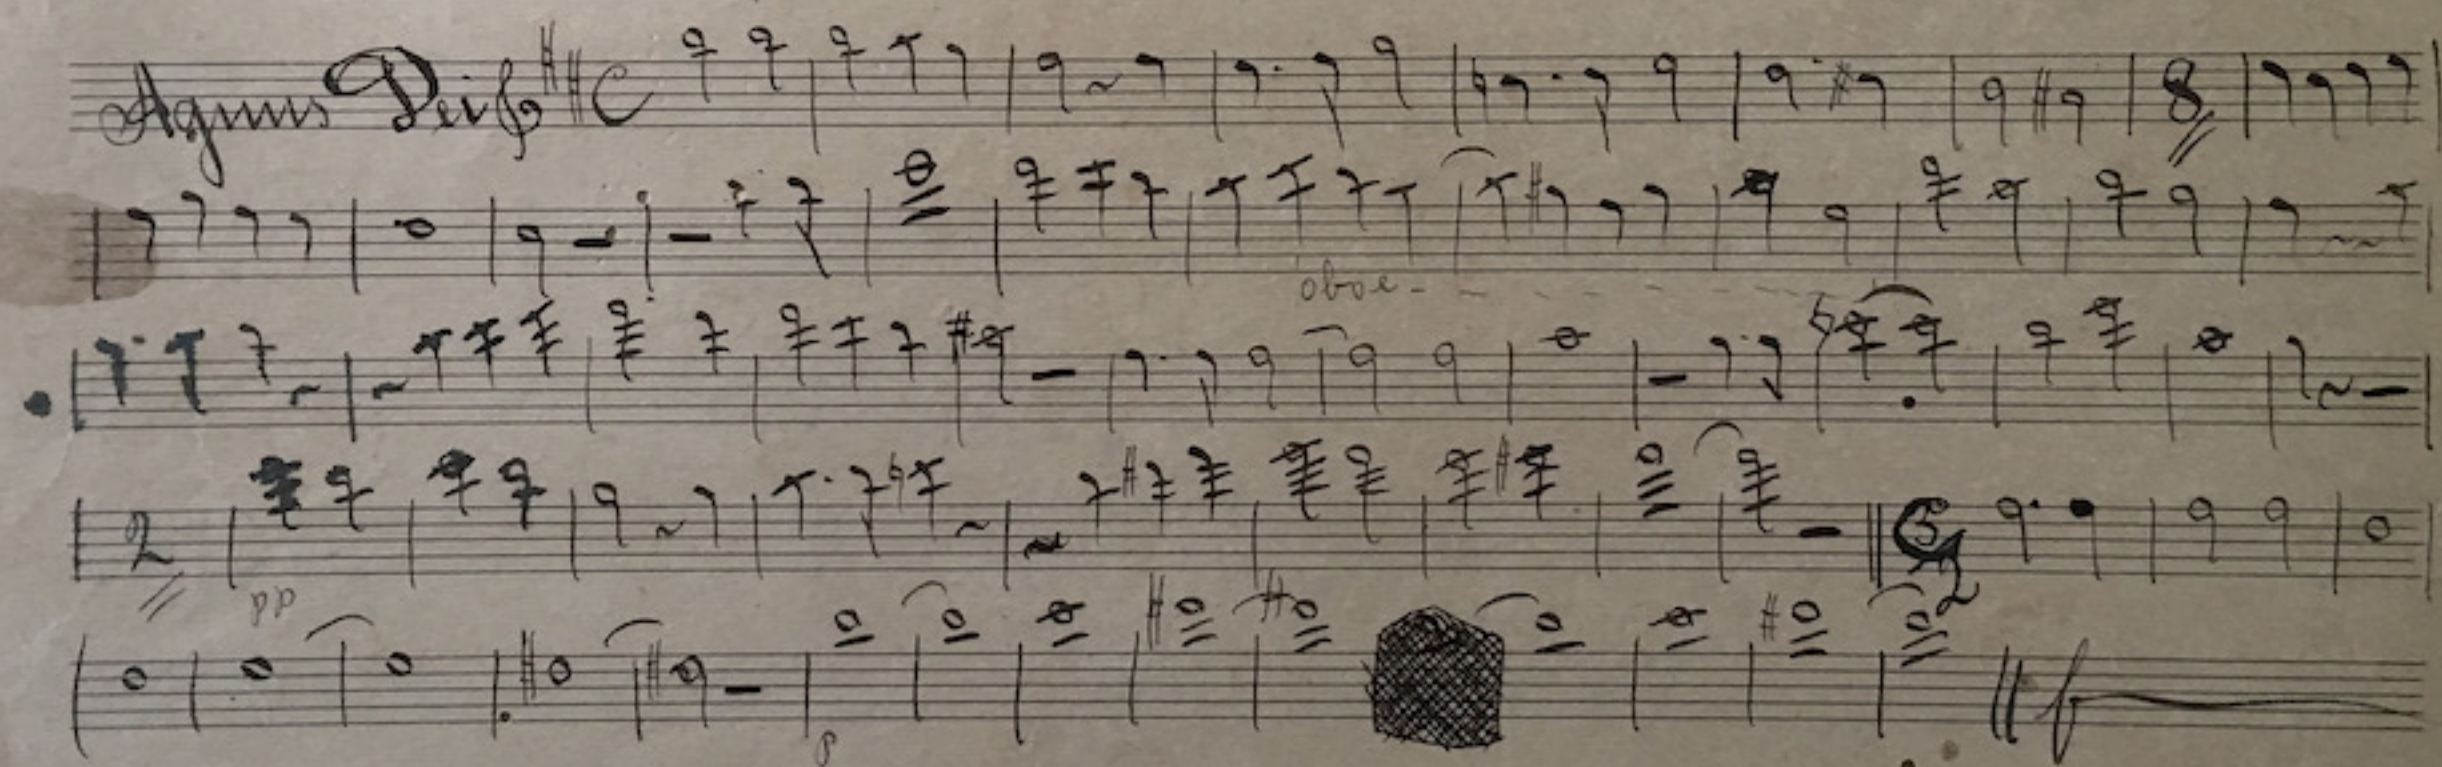 Agnus Dei C
8
oboe
2
pp
2
p